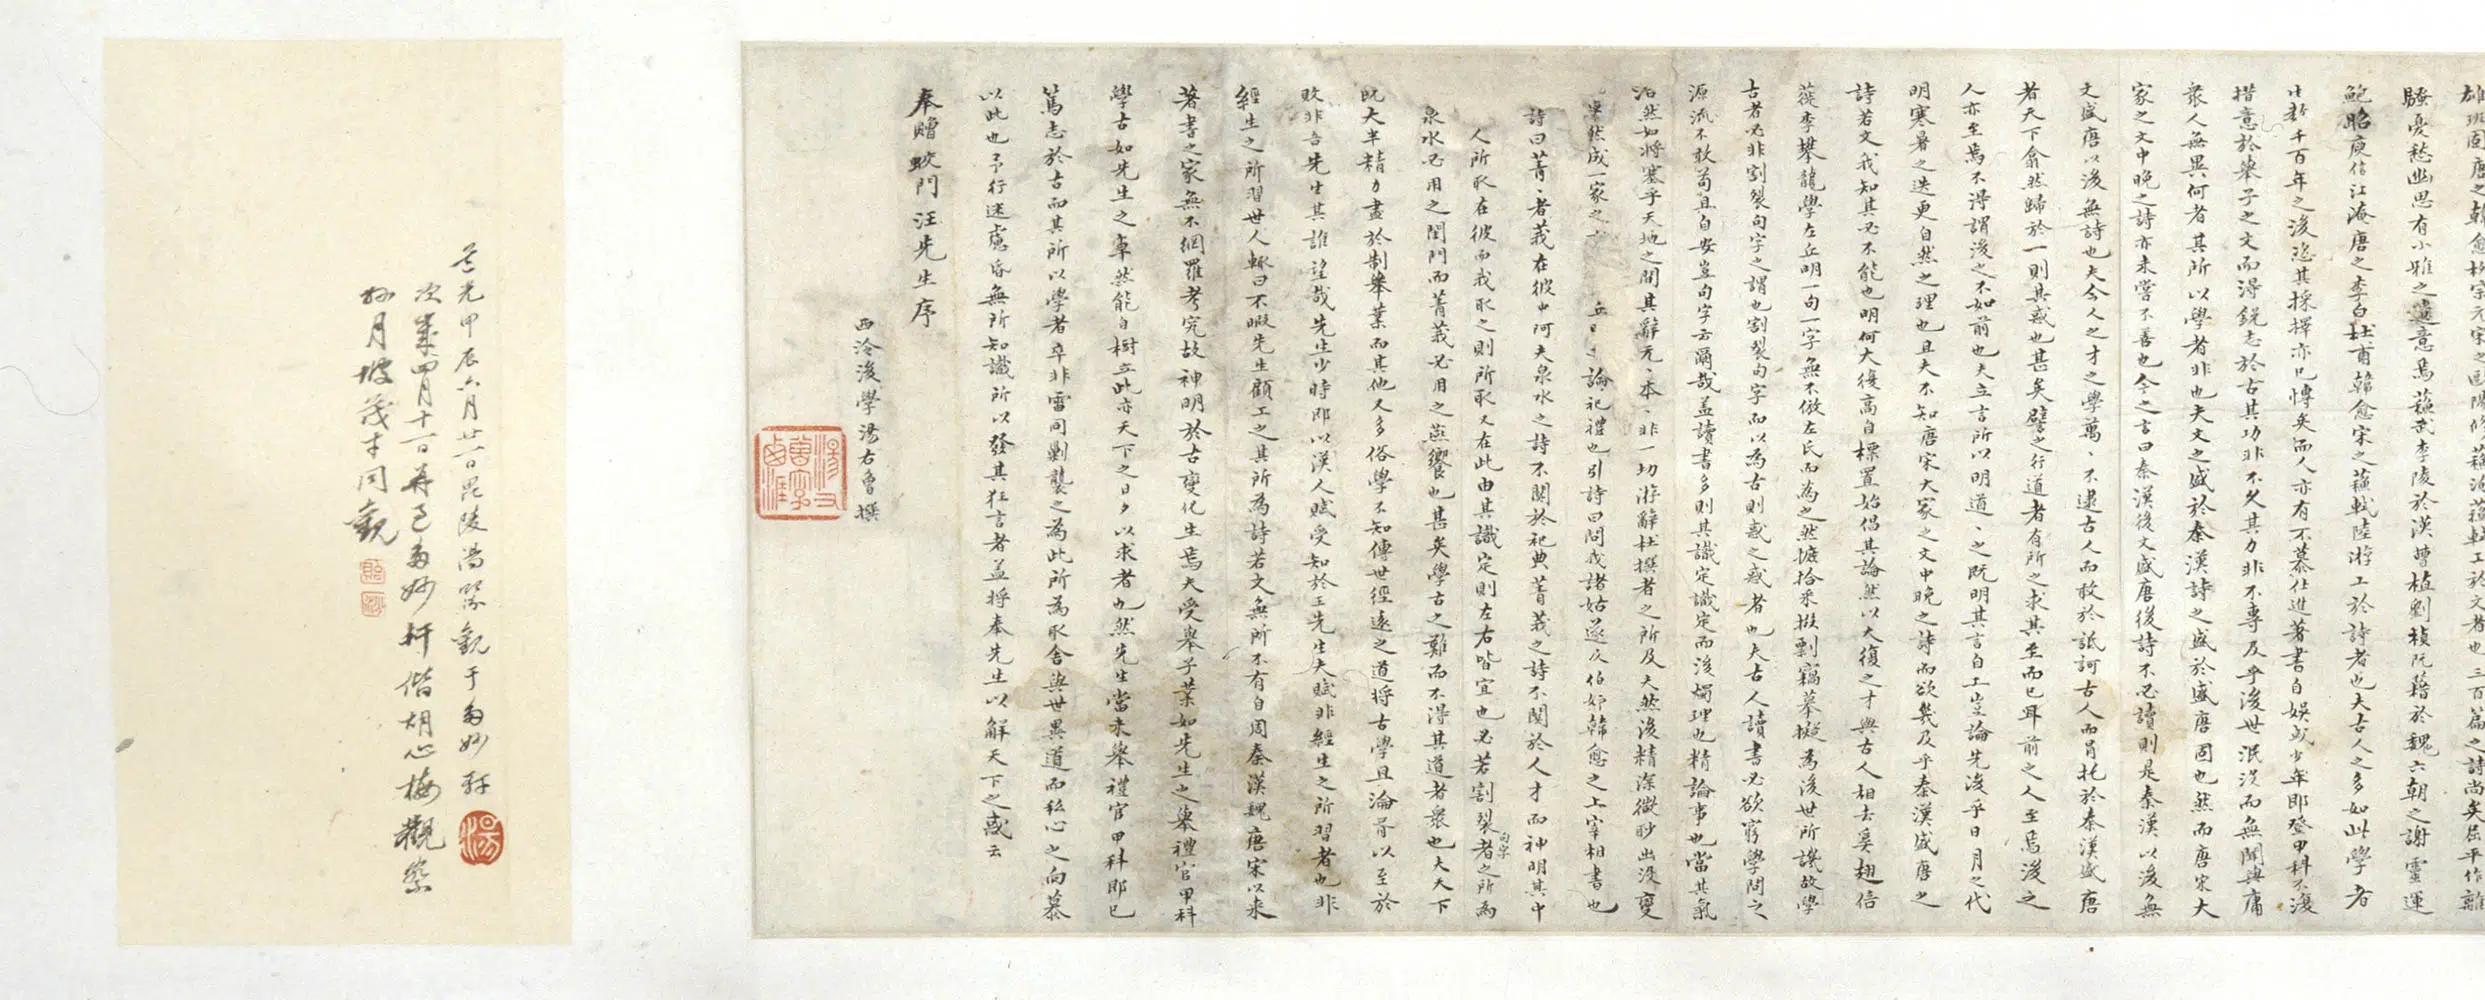 雄班固唐之韓愈柳宗元宋之歐陽修蘓洵蘓軾工於文者也三百篇之詩尚矣屈平作離
騷憂愁幽思有小雅之遺意焉蘓武李陵於漢曹植劉楨阮藉於魏六朝之謝靈運
鮑昭庾信江淹唐之李白杜甫韓愈宋之蘓軾陸游工於詩者也夫古人之多如此學者
生數千百年之後恣其採擇亦已慱矣而人亦有不慕仕進著書自娛或少年即登甲科不復
措意於舉子之文而淂銳志於古其功非不久其力非不專及乎後世泯沒而無聞與庸
衆人無異何者其所以學者非也夫文之盛於秦漢詩之盛於盛唐固也然而唐宋大
家之文中晚之詩亦未嘗不善也今之言曰秦漢後文盛唐後詩不必讀則是秦漢以後無
文盛唐以後無詩也夫今人之才之學萬〻不逮古人而敢於詆訶古人而冐托於秦漢盛唐
者天下翕然歸於一則其惑也甚矣譬之行道者有所之求其至而已耳前之人至焉後之
人亦至焉不淂謂後之不如前也夫立言所以明道〻之既明其言自工豈論先後乎日月之代
明寒暑之迭更自然之理也且夫不知唐宋大家之文中晚之詩而欲幾及乎秦漢盛唐之
詩若文我知其必不能也明何大復高自標置始倡其論然以大復之才與古人相去奚翅信
蓰李攀龍學左丘明一句一字無不倣左氏而為之然摭拾釆掇剽竊摹擬為後世所譏故學
古者必非割裂句字之謂也割裂句字而以為古則惑之惑者也夫古人讀書必欲窮學問之
源流不敢苟且自安豈句字云爾哉盖讀書多則其識定識定而後燭理也精論事也當其氣
浩然如將塞乎天地之間其辭元〻本〻非一切游辭杜撰者之所及夫然後精深微眇出沒變
卓然成一家之 丘曰 論祀禮也引詩曰問我諸姑遂及伯姊韓愈之上宰相書也
詩曰菁〻者莪在彼中阿夫泉水之詩不関於祀典菁莪之詩不関於人才而神明其中
人所取在彼而我取之則所取又在此由其識定則左右皆宜也必若割裂句字者之所為
泉水必用之閨門而菁莪必用之燕饗也甚矣學古之難而不淂其道者衆也夫天下
既大半精力盡於制舉業而其他又多俗學不知傳世徑遠之道將古學且淪胥以至於
敗非吾先生其誰望哉先生少時即以漢人賦受知於王先生夫賦非經生之所習者也非
經生之所習世人輙曰不暇先生顧工之其所為詩若文無所不有自周秦漢魏唐宋以來
著書之家無不網羅考究故神明於古變化生焉夫受舉子業如先生之舉禮官甲科
學古如先生之卓然能自樹立此亦天下之日夕以求者也然先生當未舉禮官甲科即已
篤志於古而其所以學者卒非雷同勦襲之為此所為取舍與世異道而私心之向慕
以此也予行迷慮昏無所知識所以發其狂言者盖將奉先生以解天下之惑云
奉贈蛟門汪先生序
西泠後學湯右曾撰
道光甲辰六月廿一日毘陵湯 觀于 妙軒
次年四月十一日再過 妙軒偕胡心梅觀察
孫月坡茂才同觀
湯